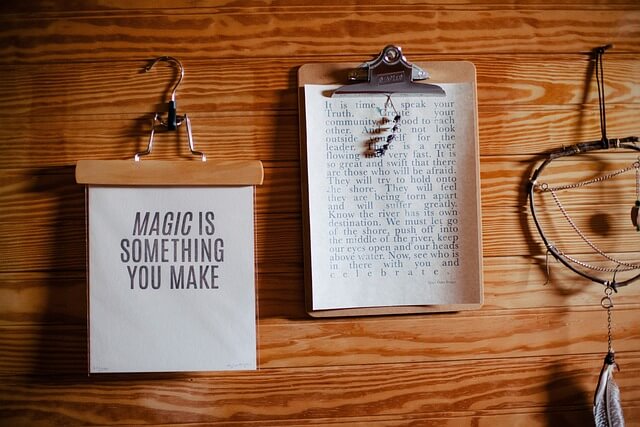 MAGIC IS
SOMETHING
YOU MAKE
It is time speak your
Truth. Create your
community. good to each
other. And not look
outside yourself for the
leader. is a river
flowing very fast. It is
so great and swift that there
are those who will be afraid.
They will try to hold onto
the shore. They will feel
they are being torn apart
and will suffer greatly.
Know the river has its own
destination. We must let go
of the shore, push off into
the middle of the river, keep
our eyes open and our heads
above water. Now, see who is
in there with you and
celebrate.